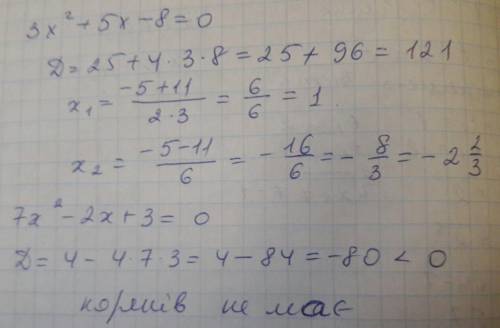 3x² + 5x - 8 = 0
Д = 25 + 4 · 3 · 8 = 25 + 96 = 121
x₁ = (-5 + 11)/(2 · 3) = 6/6 = 1
x₂ = (-5 - 11)/6 = - 16/6 = - 8/3 = - 2 2/3
7x² - 2x + 3 = 0
Д = 4 - 4 · 7 · 3 = 4 - 84 = -80 < 0
коренів не має